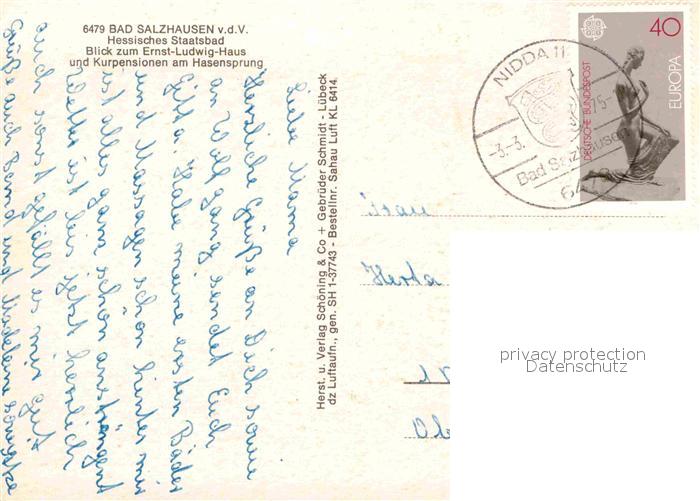 6479 BAD SALZHAUSEN v.d.V.
Hessisches Staatsbad
Blick zum Ernst-Ludwig-Haus
und Kurpensionen am Hasensprung
Liebe Mama
Herzliche Grüße an Dich sowie
an Wolfgang sendet Euch
Habe meine ersten Bäder
und Massagen schon hinter mir
ist alles ganz schön anstrengend
Wetter ist bis jetzt herrlich
auch sonst gefällt es mir gut
Grüße auch Bernd und
Herst. u. Verlag Schöning & Co + Gebrüder Schmidt - Lübeck
dz Luftaufn., gen. SH 1-37743 - Bestellnr. Sahau Luft KL 6414
NIDDA 11
-3.-3.
75-
Bad Salzhausen
DEUTSCHE BUNDESPOST
40
EUROPA
Frau
Herta
privacy protection
Datenschutz